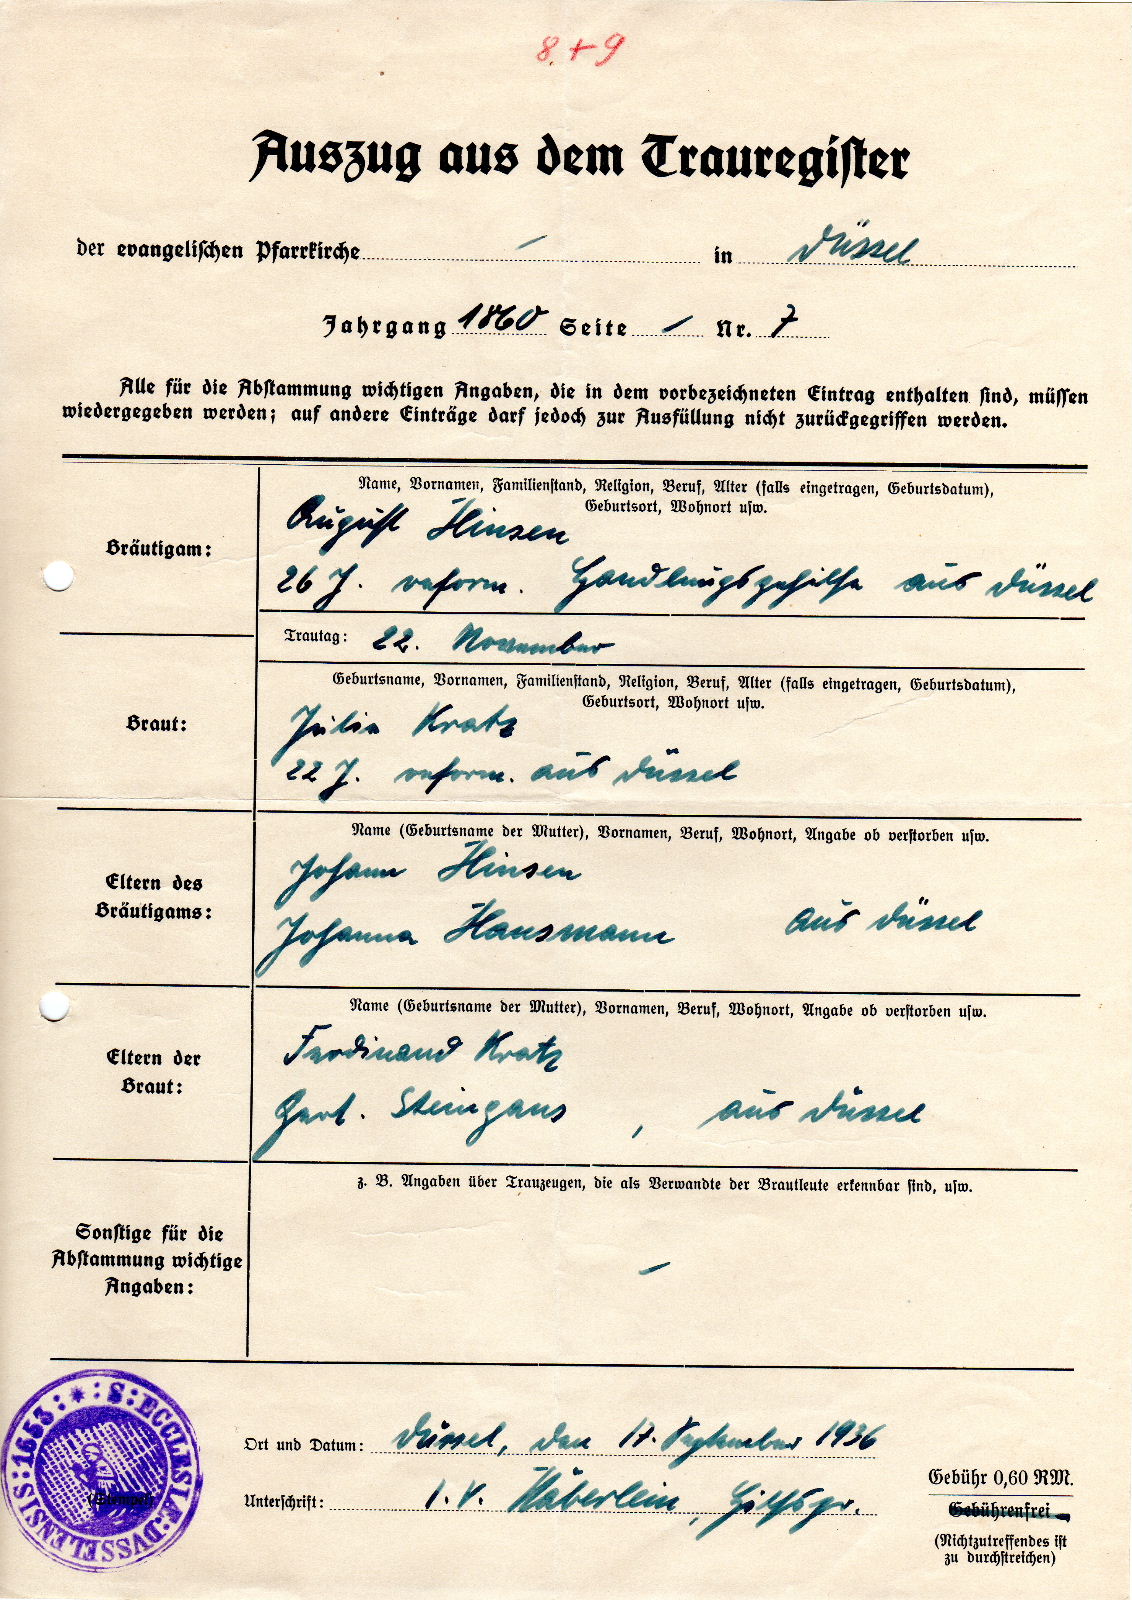 8.+9
Auszug aus dem Trauregister
der evangelischen Pfarrkirche - in Düssel
Jahrgang 1860 Seite - Nr. 7
Alle für die Abstammung wichtigen Angaben, die in dem vorbezeichneten Eintrag enthalten sind, müssen
wiedergegeben werden; auf andere Einträge darf jedoch zur Ausfüllung nicht zurückgegriffen werden.
Name, Vornamen, Familienstand, Religion, Beruf, Alter (falls eingetragen, Geburtsdatum),
Geburtsort, Wohnort usw.
August Hinsen
Bräutigam:
26 J. reform. Handlungsgehilfe aus Düssel
Trautag: 22. November
Geburtsname, Vornamen, Familienstand, Religion, Beruf, Alter (falls eingetragen, Geburtsdatum),
Geburtsort, Wohnort usw.
Braut:
Julie Kratz
22 J. reform. aus Düssel
Name (Geburtsname der Mutter), Vornamen, Beruf, Wohnort, Angabe ob verstorben usw.
Johann Hinsen
Eltern des
Bräutigams:
Johanna Hausmann aus Düssel
Name (Geburtsname der Mutter), Vornamen, Beruf, Wohnort, Angabe ob verstorben usw.
Ferdinand Kratz
Eltern der
Braut:
Gert. Steingans, aus Düssel
z. B. Angaben über Trauzeugen, die als Verwandte der Brautleute erkennbar sind, usw.
Sonstige für die
Abstammung wichtige
Angaben:
-
S: ECCLESIÆ: DVSSELENSIS: 1653:
(Stempel)
Ort und Datum: Düssel, den 17. September 1936
Unterschrift: I. V. Häberlein, Hilfspr.
Gebühr 0,60 RM.
Gebührenfrei
(Nichtzutreffendes ist
zu durchstreichen)